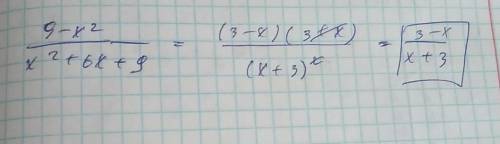 9-x² / x²+6x+9 = (3-x)(3+x) / (x+3)² = 3-x / x+3